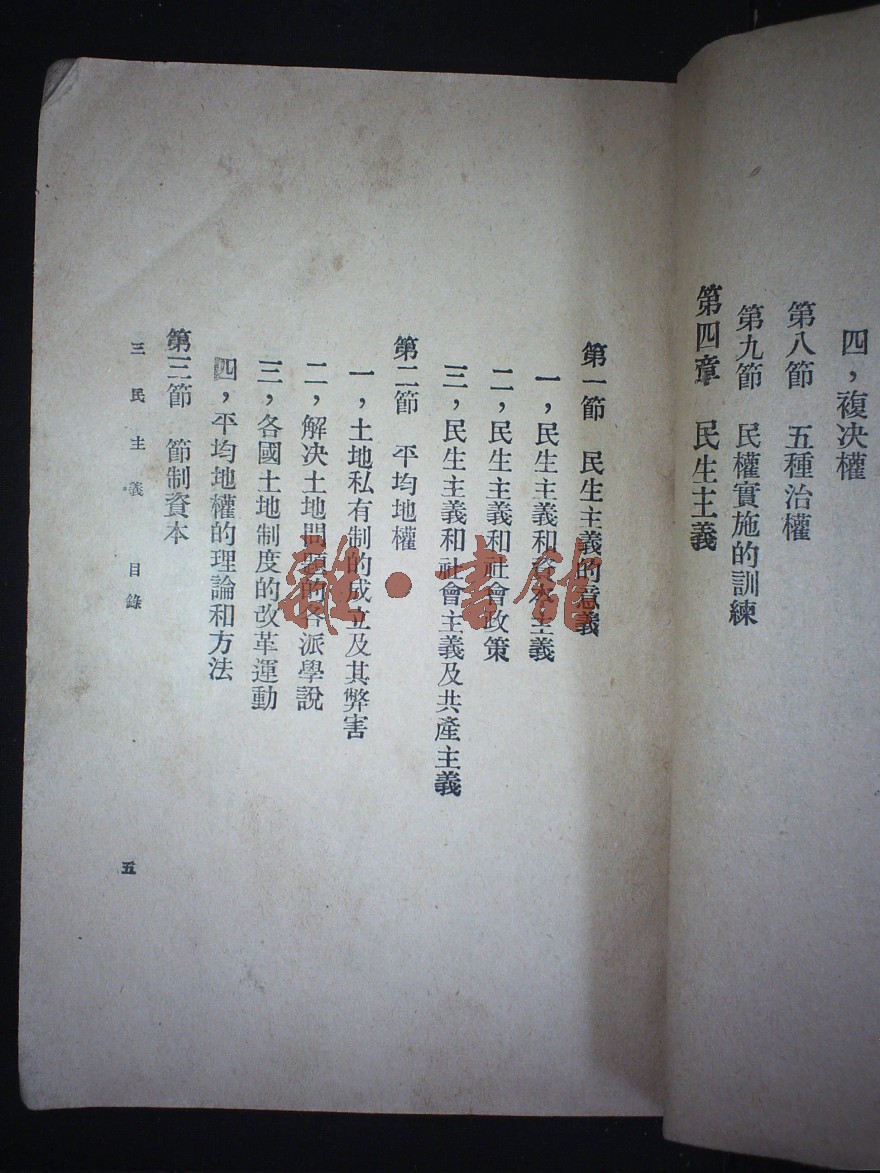 四，複决權
第八節　五種治權
第九節　民權實施的訓練
第四章　民生主義
第一節　民生主義的意義
一，民生主義和資本主義
二，民生主義和社會政策
三，民生主義和社會主義及共產主義
第二節　平均地權
一，土地私有制的成立及其弊害
二，解决土地問題的各派學說
三，各國土地制度的改革運動
四，平均地權的理論和方法
第三節　節制資本
三民主義　目錄
五